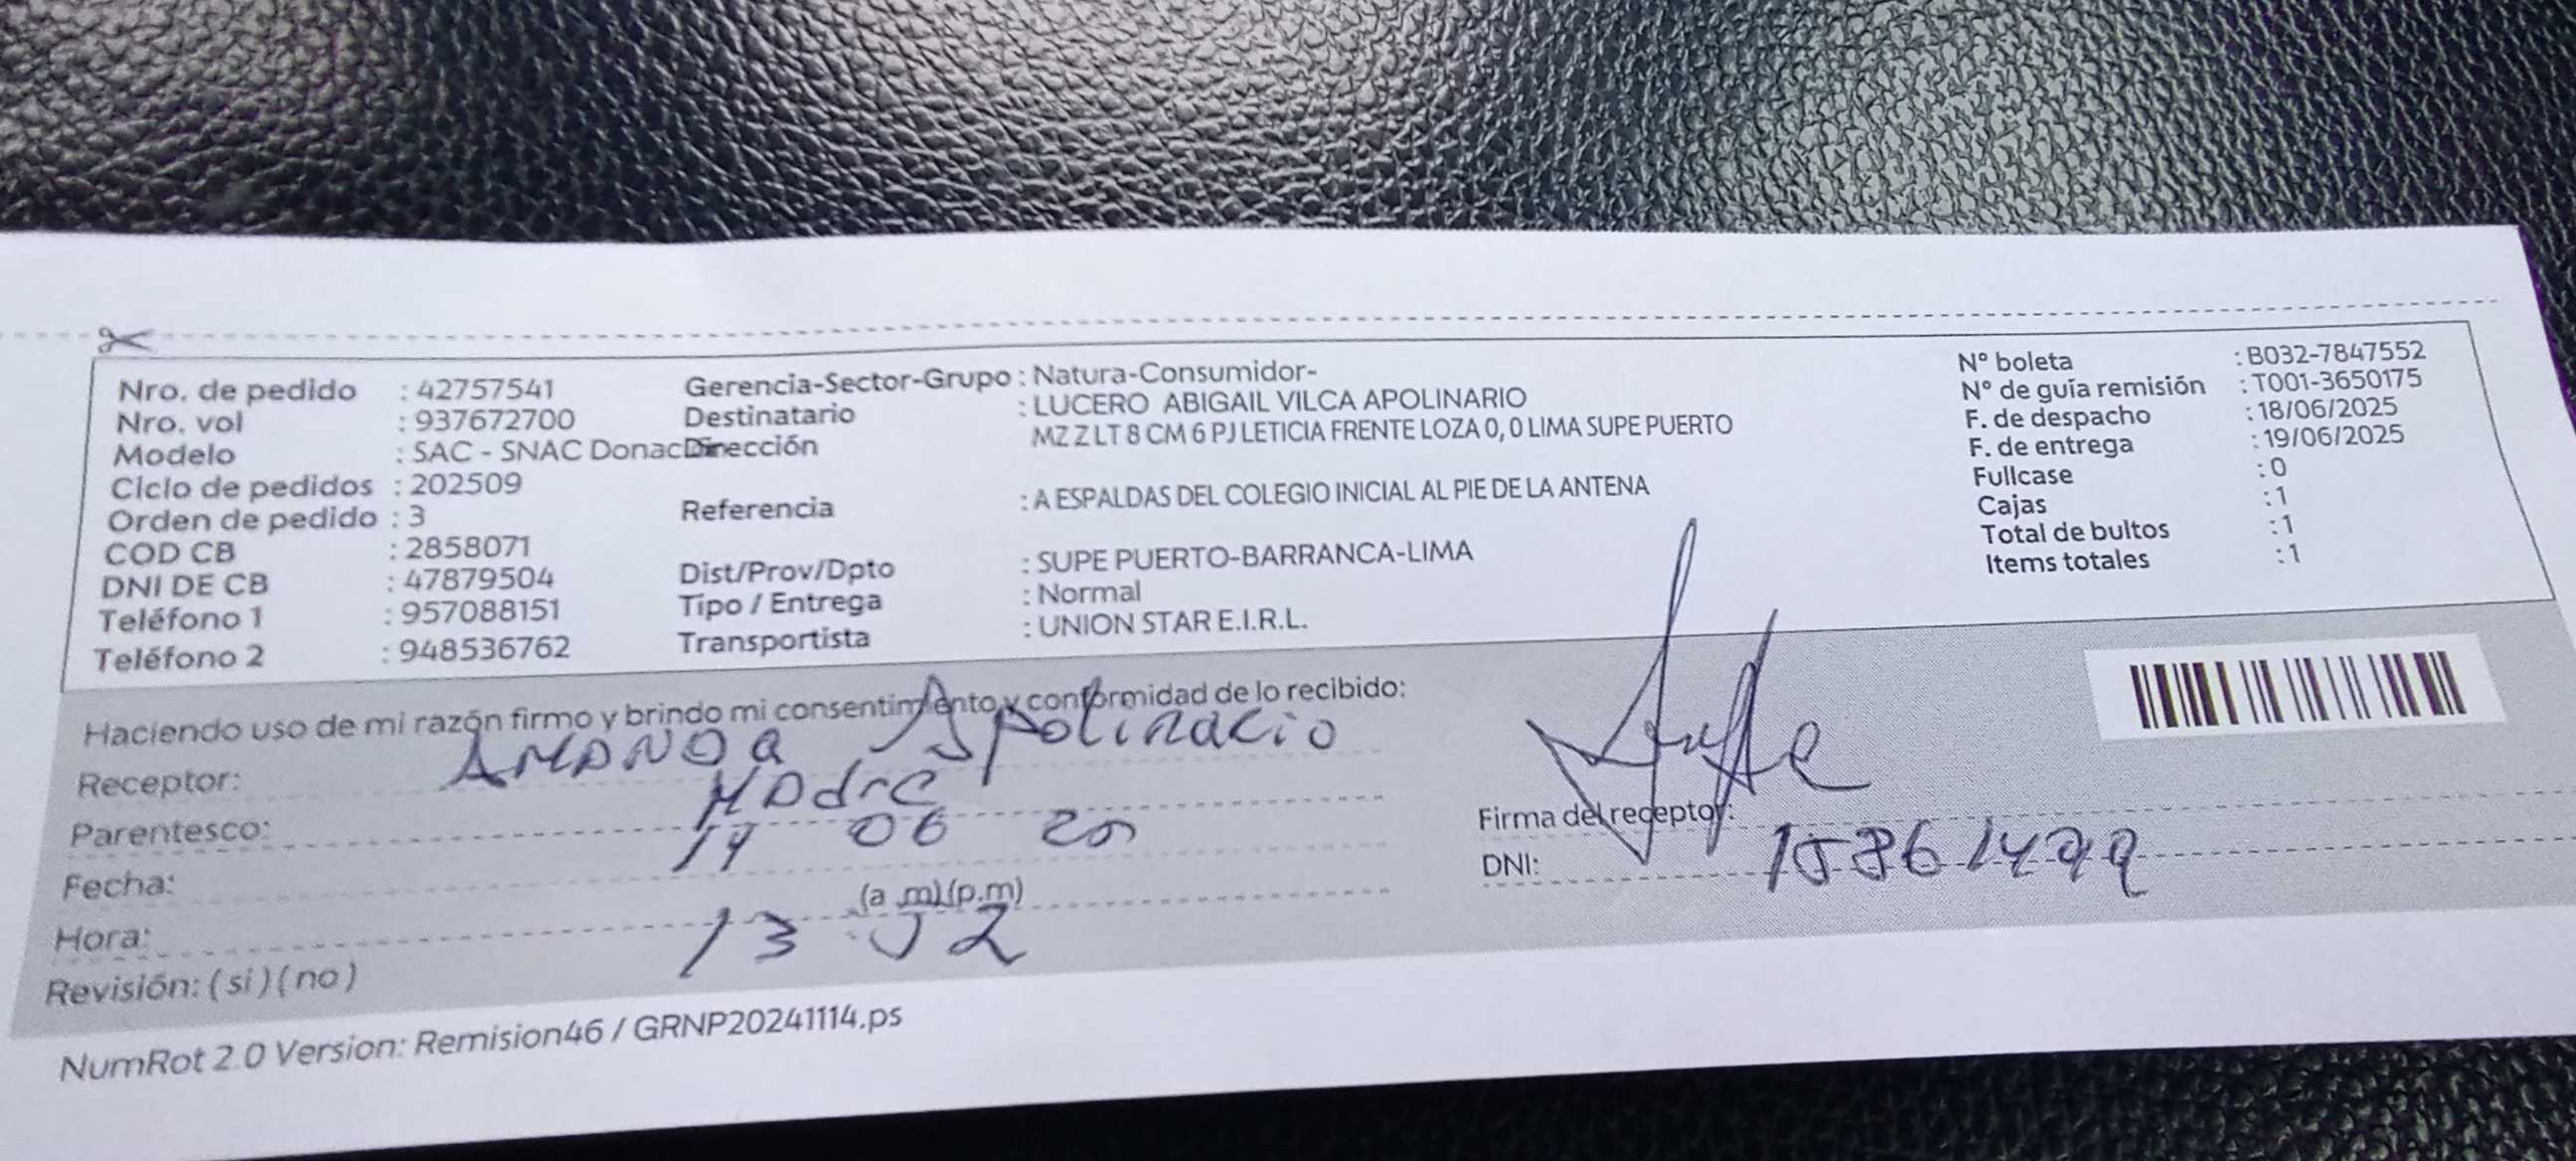 Nro. de pedido : 42757541
Nro. vol : 937672700
Modelo : SAC - SNAC Donac
Ciclo de pedidos : 202509
Orden de pedido : 3
COD CB : 2858071
DNI DE CB : 47879504
Teléfono 1 : 957088151
Teléfono 2 : 948536762
Gerencia-Sector-Grupo : Natura-Consumidor-
Destinatario : LUCERO ABIGAIL VILCA APOLINARIO
Dirección MZ Z LT 8 CM 6 PJ LETICIA FRENTE LOZA 0, 0 LIMA SUPE PUERTO
Referencia : A ESPALDAS DEL COLEGIO INICIAL AL PIE DE LA ANTENA
Dist/Prov/Dpto : SUPE PUERTO-BARRANCA-LIMA
Tipo / Entrega : Normal
Transportista : UNION STAR E.I.R.L.
N° boleta : B032-7847552
N° de guía remisión : T001-3650175
F. de despacho : 18/06/2025
F. de entrega : 19/06/2025
Fullcase : 0
Cajas : 1
Total de bultos : 1
Items totales : 1
Haciendo uso de mi razón firmo y brindo mi consentimiento y conformidad de lo recibido:
Receptor: AMANDA Apolinario
Parentesco: Madre
Fecha: 19 06 25
Hora: 13 52 (a.m)(p.m)
Revisión: (si) (no)
Firma del receptor:
DNI:
NumRot 2.0 Version: Remision46 / GRNP20241114.ps